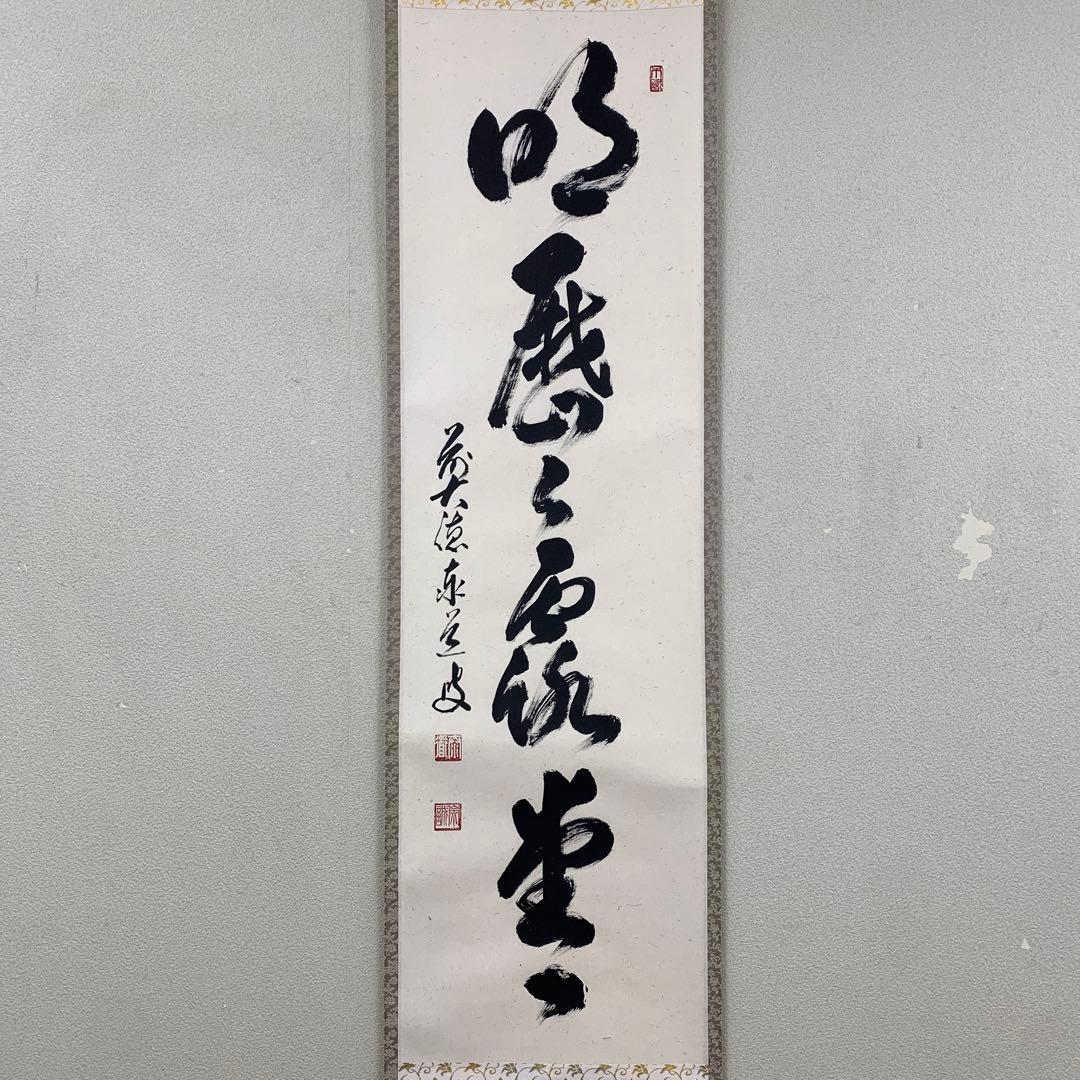 明歴々露堂々
前大徳泰道叟